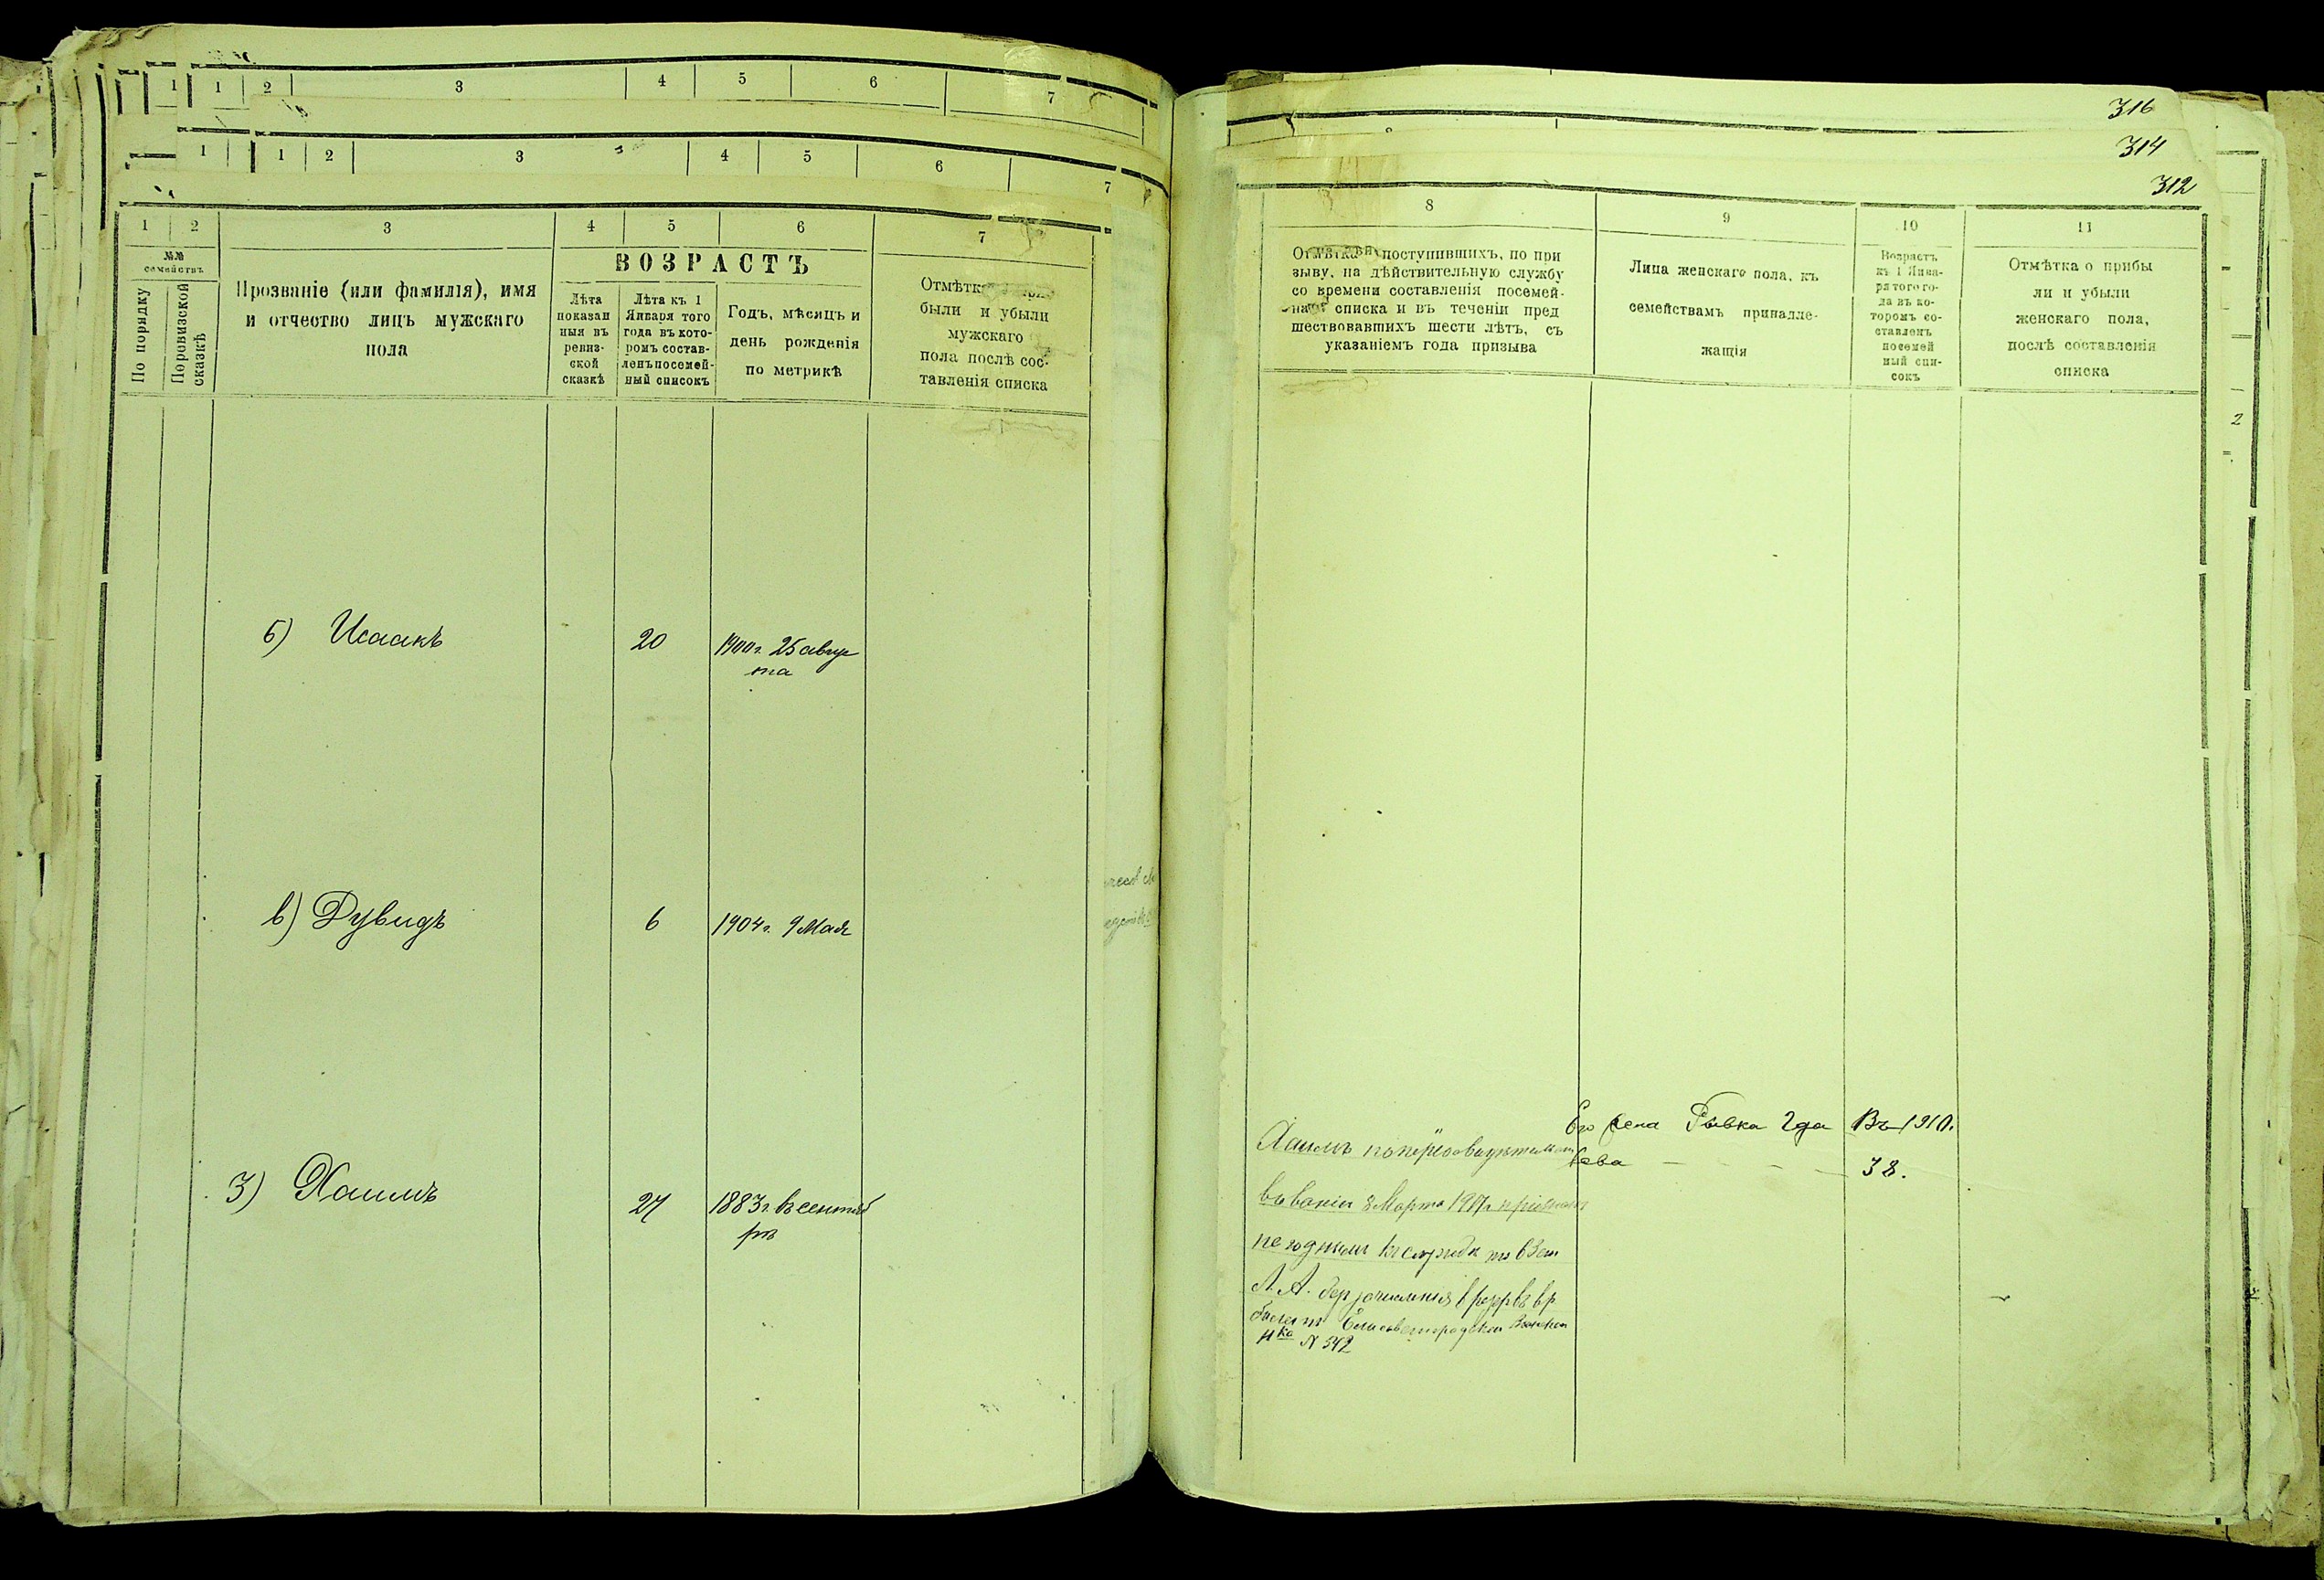 1 1 2 3 4 5 6 7
1 1 2 3 4 5 6 7
1 2 3 4 5 6 7
№№ семействъ
По порядку
Поревизской сказкѣ
Прозваніе (или фамилія), имя
и отчество лицъ мужскаго
пола
ВОЗРАСТЪ
Лѣта
показан
ныя въ
ревиз-
ской
сказкѣ
Лѣта къ 1
Января того
года въ кото-
ромъ состав-
ленъ посемей-
ный списокъ
Годъ, мѣсяцъ и
день рожденія
по метрикѣ
Отмѣтк
были и убыли
мужскаго
пола послѣ сос-
тавленія списка
б) Исаакъ 20 1900 г. 25 авгус
та
в) Дувидъ 6 1904 г. 9 Мая
3) Хаимъ 27 1883 г. въ сентяб
рѣ
316
314
312
8 9 10 11
Отмѣтка поступившихъ, по при
зыву, на дѣйствительную службу
со времени составленія посемей-
наго списка и въ теченіи пред
шествовавшихъ шести лѣтъ, съ
указаніемъ года призыва
Лица женскаго пола, къ
семействамъ принадле-
жащія
Возрастъ
къ 1 Янва-
ря того го-
да въ ко-
торомъ со-
ставленъ
посемей
ный спи-
сокъ
Отмѣтка о прибы
ли и убыли
женскаго пола,
послѣ составленія
списка
2
Его жена Рывка Года Въ 1910.
Хаимъ по
ева 38.
8 Марта 1917 г. признан
негоднымъ къ службѣ
Елисаветградскаго Воинскаго
Н-ка № 542